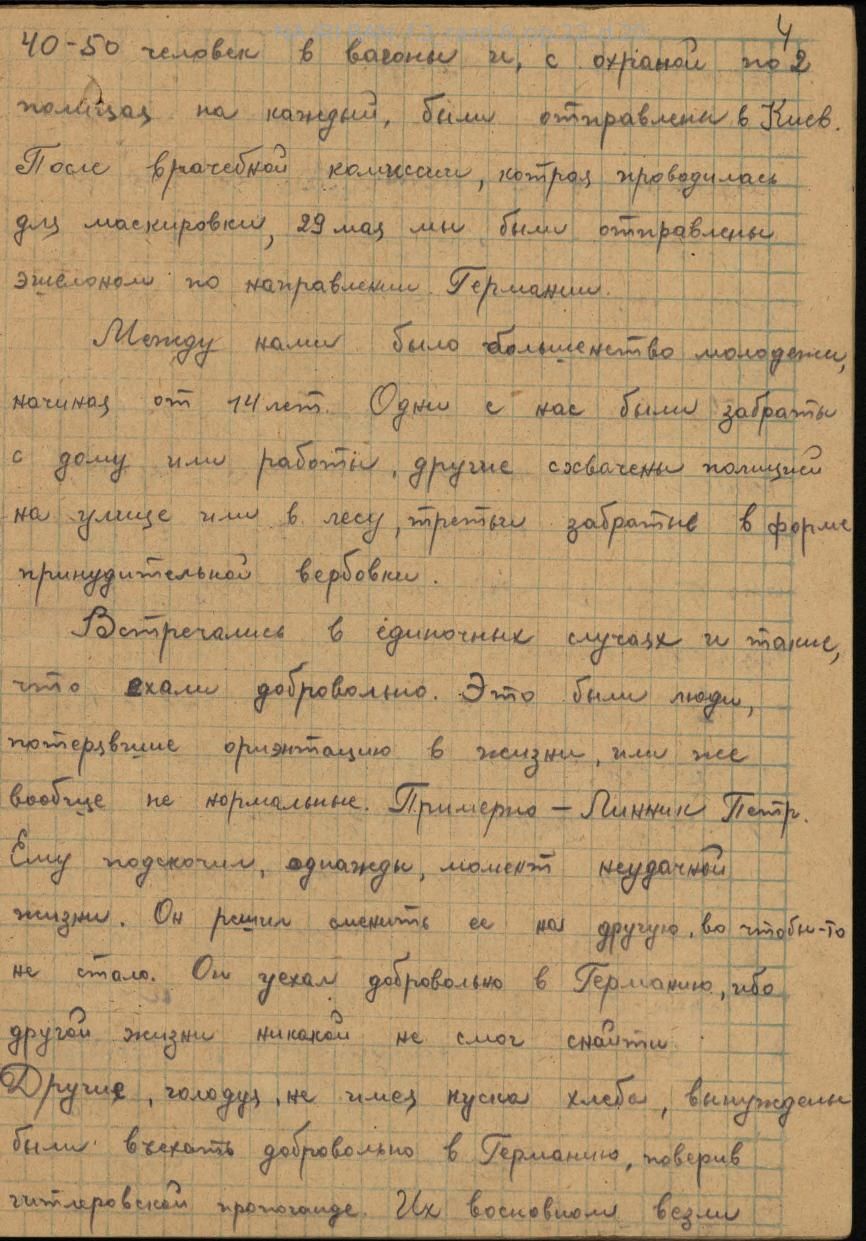 4
40-50 человек в вагоны и, с охраной по 2
полицая на каждый, были отправлены в Киев.
После врачебной комиссии, котрая проводилась
для маскировки, 29 мая мы были отправлены
эшелоном по направлении Германии.
Между нами было большенство молодежи,
начиная от 14 лет. Одни с нас были забраты
с дому или работы, другие схвачены полицией
на улице или в лесу, третьи забратые в форме
принудительной вербовки.
Встречались в единочных случаях и такие,
что ехали добровольно. Это были люди,
потерявшие ориэнтацию в жизни, или же
вообще не нормальные. Примерно – Линник Петр.
Ему подскочил, однажды, момент неудачной
жизни. Он решил сменить ее на другую, во чтобы-то
не стало. Он уехал добровольно в Германию, ибо
другой жизни никакой не смог снайти.
Другие, голодуя, не имея куска хлеба, вынуждены
были въехать добровольно в Германию, поверив
гитлеровской пропоганде. Их восновном везли